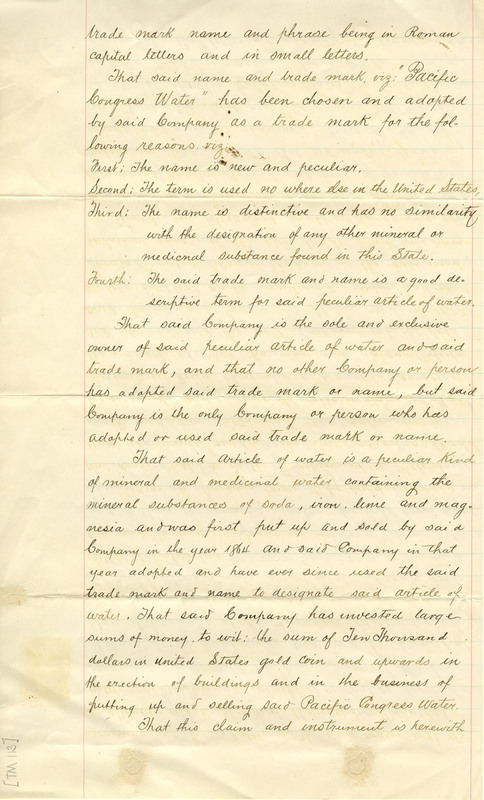 trade mark name and phrase being in Roman
capital letters and in small letters.
That said name and trade mark, viz: "Pacific
Congress Water" has been chosen and adopted
by said Company as a trade mark for the fol-
lowing reasons. viz;
First; The name is new and peculiar.
Second; The term is used no where else in the United States,
Third; The name is distinctive and has no similarity
with the designation of any other mineral or
medicnal substance found in this State.
Fourth: The said trade mark and name is a good de-
scriptive term for said peculiar article of water.
That said Company is the sole and exclusive
owner of said peculiar article of water and said
trade mark, and that no other Company or person
has adopted said trade mark or name, but said
Company is the only Company or person who has
adopted or used said trade mark or name.
That said article of water is a peculiar kind
of mineral and medicinal water containing the
mineral substances of soda, iron. lime and mag-
nesia and was first put up and sold by said
Company in the year 1864 and said Company in that
year adopted and have ever since used the said
trade mark and name to designate said article of
water. That said Company has invested large
sums of money. to wit: the sum of Ten Thousand
dollars in United States gold coin and upwards in
the erection of buildings and in the business of
putting up and selling said Pacific Congress Water.
That this claim and instrument is herewith
[TM 113]